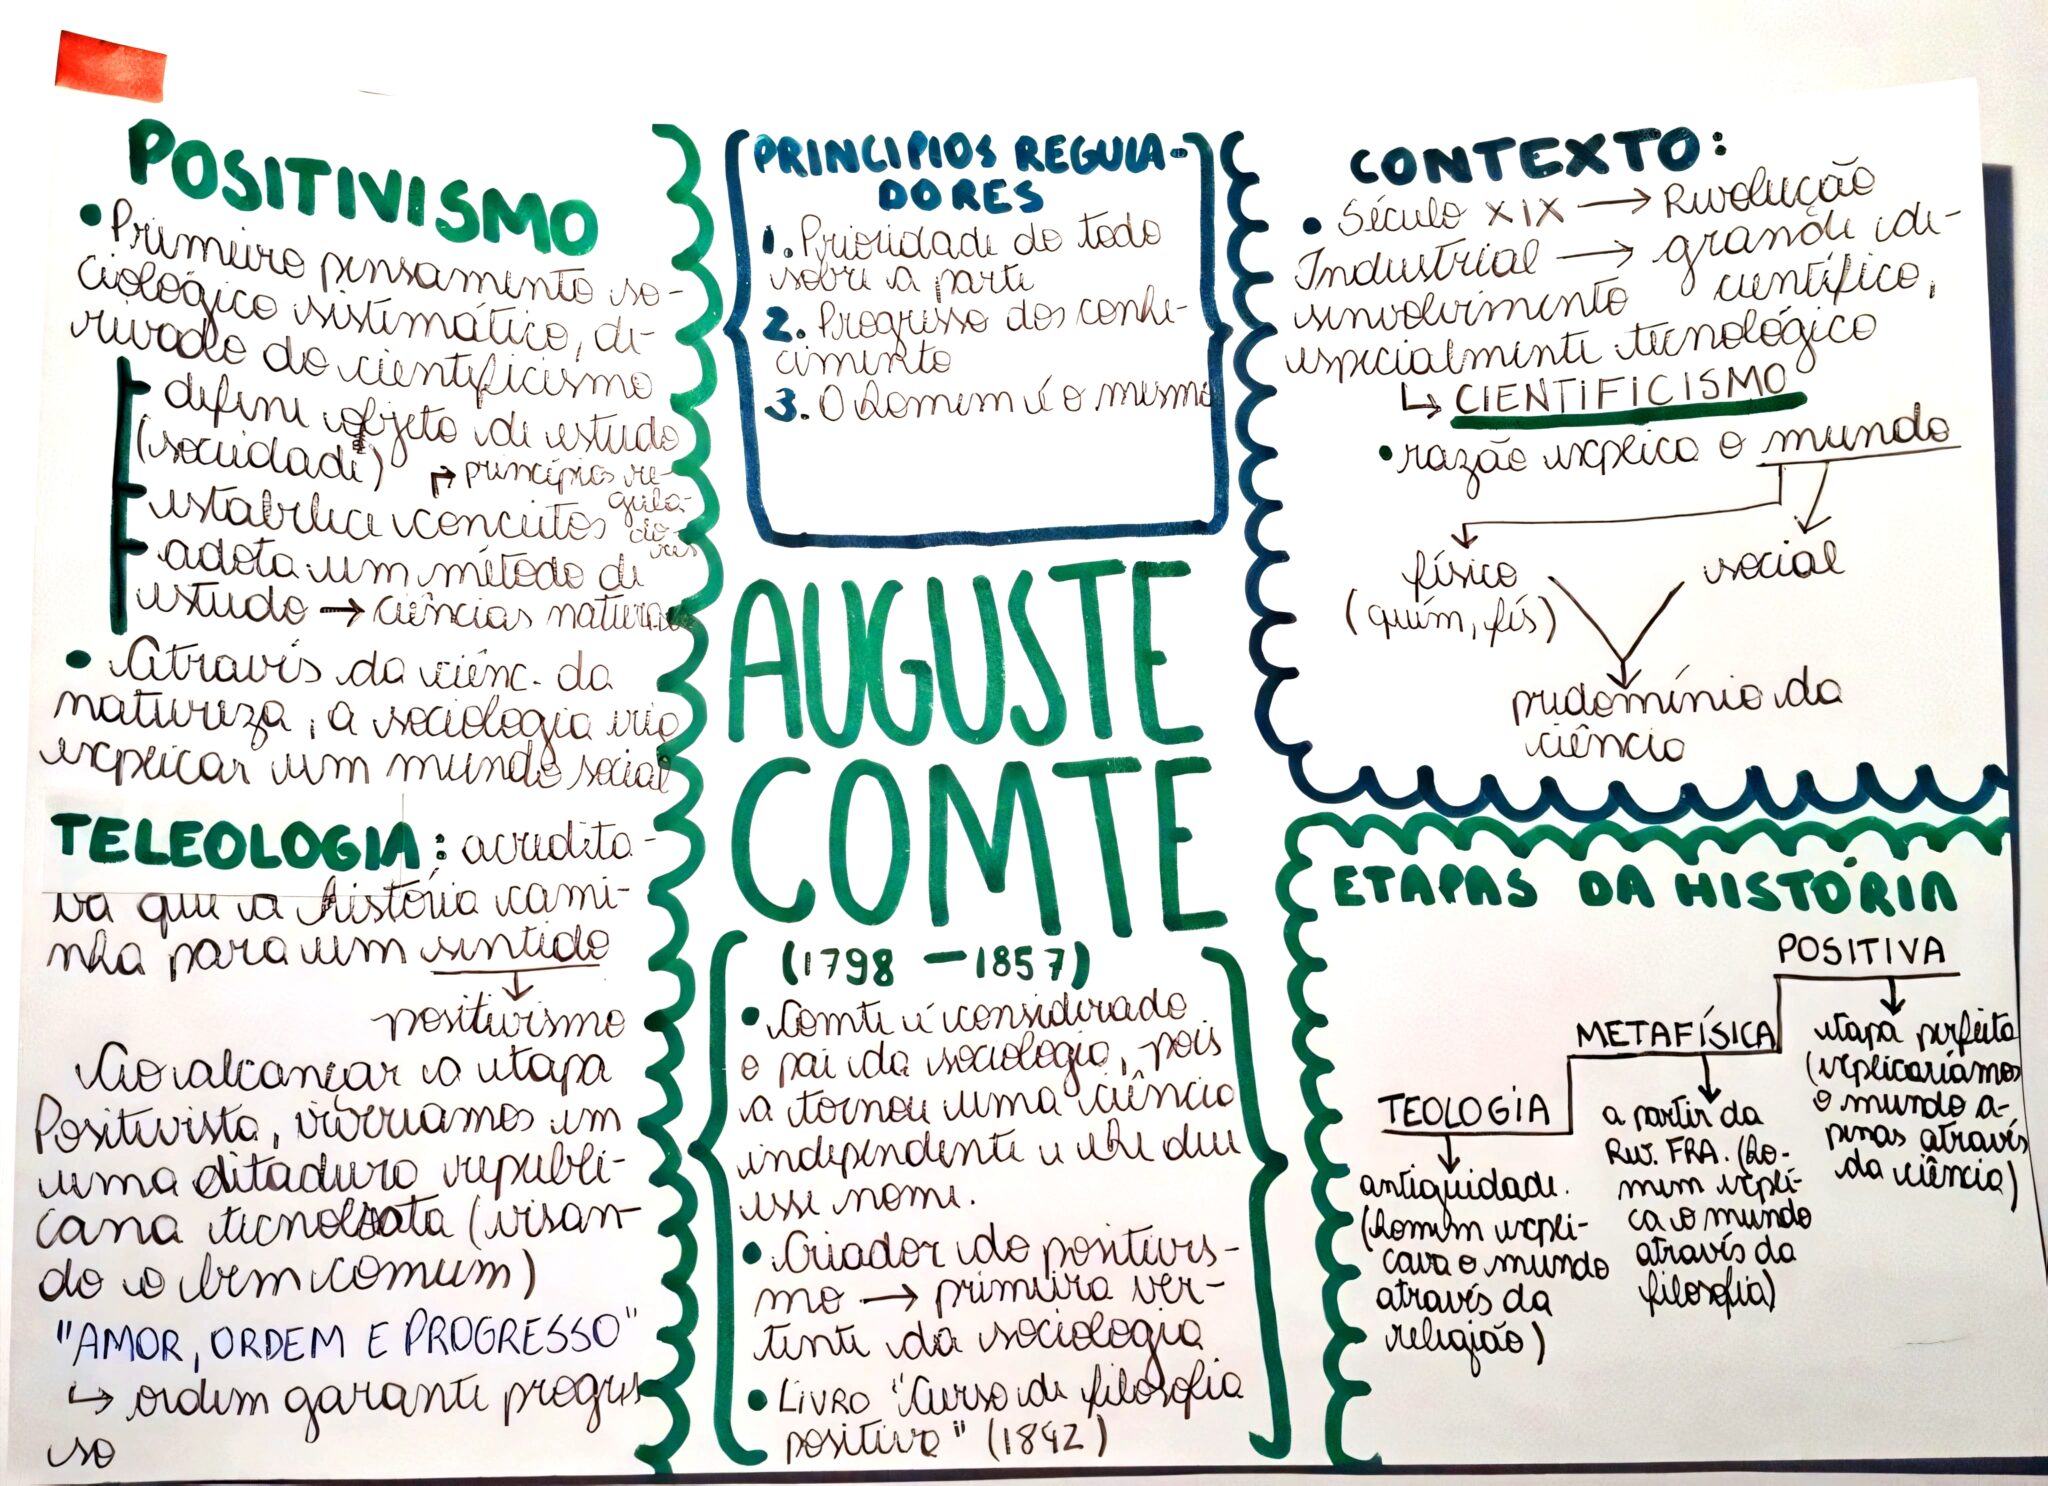 POSITIVISMO
• Primeiro pensamento so-
ciológico sistemático, de-
rivado do cientificismo
define objeto de estudo
(sociedade)
→ princípios re-
gula-
do-
res
estabelece conceitos
adota um método de
estudo → ciências naturais
• Através da ciênc. da
natureza, a sociologia iria
explicar um mundo social
TELEOLOGIA: acredita-
va que a história cami-
nha para um sentido
positivismo
Ao alcançar a etapa
Positivista, viveríamos em
uma ditadura republi-
cana tecnolo (visan-
do o bem comum)
"AMOR, ORDEM E PROGRESSO"
↳ ordem garante progres
so
PRINCIPIOS REGULA-
DORES
1. Prioridade do todo
sobre a parte
2. Progresso dos conhe-
cimento
3. O homem é o mesmo
AUGUSTE
COMTE
(1798 - 1857)
• Comte é considerado
o pai da sociologia, pois
a tornou uma ciência
independente e lhe deu
esse nome.
• Criador do positivis-
mo → primeira ver-
tente da sociologia
• LIVRO "Curso de filosofia
positiva" (1842)
CONTEXTO:
• Século XIX → Revolução
Industrial → grande de-
senvolvimento científico,
especialmente tecnológico
↳ CIENTIFICISMO
• razão explica o mundo
físico social
(quím, fís)
predomínio da
ciência
ETAPAS DA HISTÓRIA
POSITIVA
etapa perfeita
(explicaríamos
o mundo a-
penas através
da ciência)
METAFÍSICA
a partir da
Rev. FRA. (ho-
mem expli-
ca o mundo
através da
filosofia)
TEOLOGIA
antiguidade.
(homem expli-
cava o mundo
através da
religião)